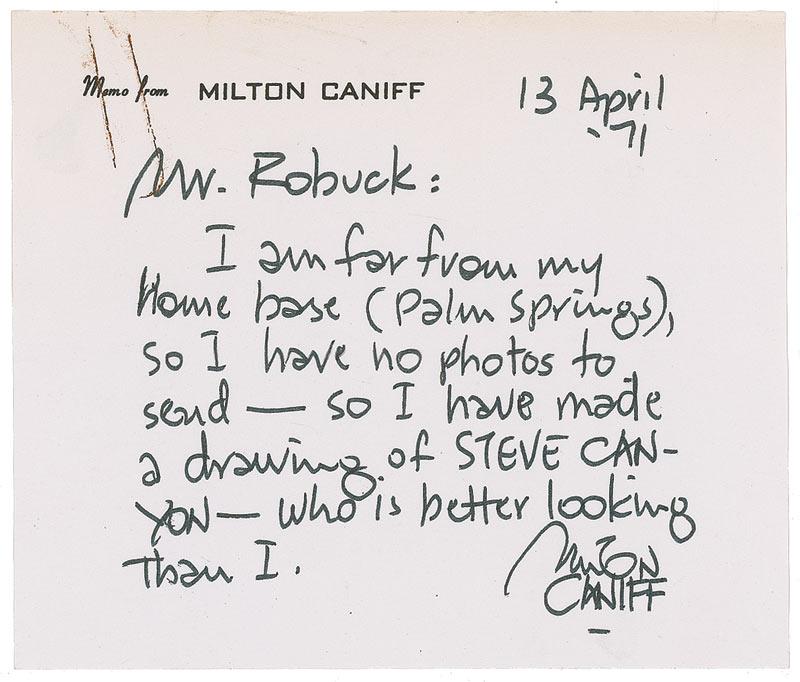 Memo from MILTON CANIFF
13 April
'71
Mr. Robuck:
I am far from my
Home base (Palm Springs),
so I have no photos to
send — so I have made
a drawing of STEVE CAN-
YON — who is better looking
than I.
MILTON
CANIFF